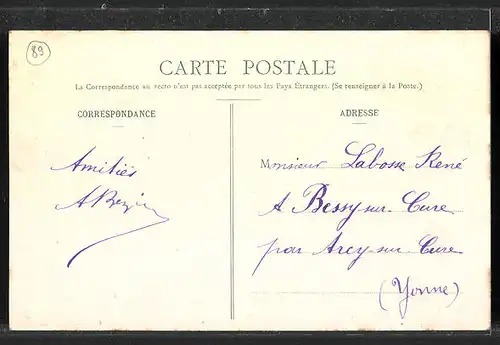 89
CARTE POSTALE
La Correspondance au recto n'est pas acceptée par tous les Pays Étrangers. (Se renseigner à la Poste.)
CORRESPONDANCE
ADRESSE
Amitiés
Monsieur Labosse René
A Bessy-sur-Cure
par Arcy-sur-Cure
(Yonne)